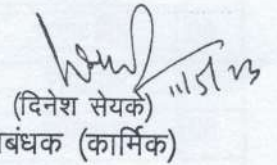 11/5/23
(दिनेश सेयके)
बंधक (कार्मिक)